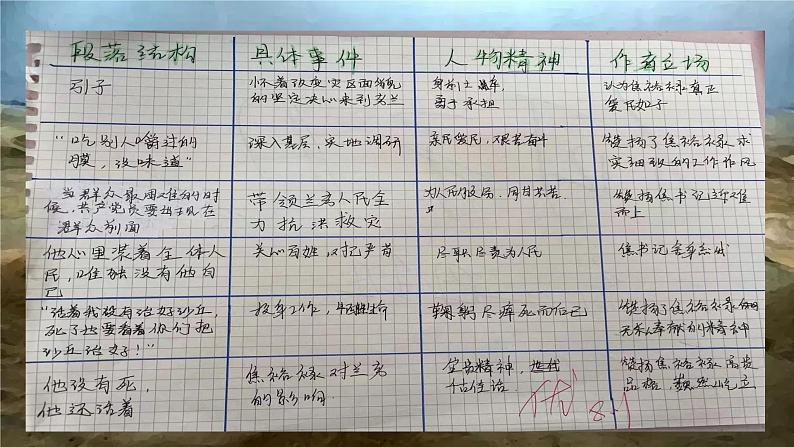 段落结构
具体事件
人物精神
作者立场
引子
怀着改变灾区面貌
的坚定决心来到兰考
身先士卒,
勇于承担
认为焦裕禄真正
爱民如子
“吃别人嚼过的
馍,没味道”
深入基层,实地调研
亲民爱民,艰苦奋斗
赞扬了焦裕禄求
实细致的工作作风
当群众最困难的时
候,共产党员要出现在
群众前面
带领兰考人民全
力抗洪救灾
为人民服务,
赞扬焦书记迎难
而上
他心里装着全体人
民,唯独没有他自
己
关心百姓,以把严苛
尽职尽责为人民
焦书记舍身忘我
“活着我没有治好沙丘,
死了也要看着你们把
沙丘治好!”
投身工作,牺牲生命
鞠躬尽瘁死而后已
赞扬了焦裕禄的
无私奉献的精神
他没有死,
他还活着
焦裕禄对兰考
的影响
宝贵精神
赞扬焦裕禄高贵
品格,巍然屹立
优
8.1